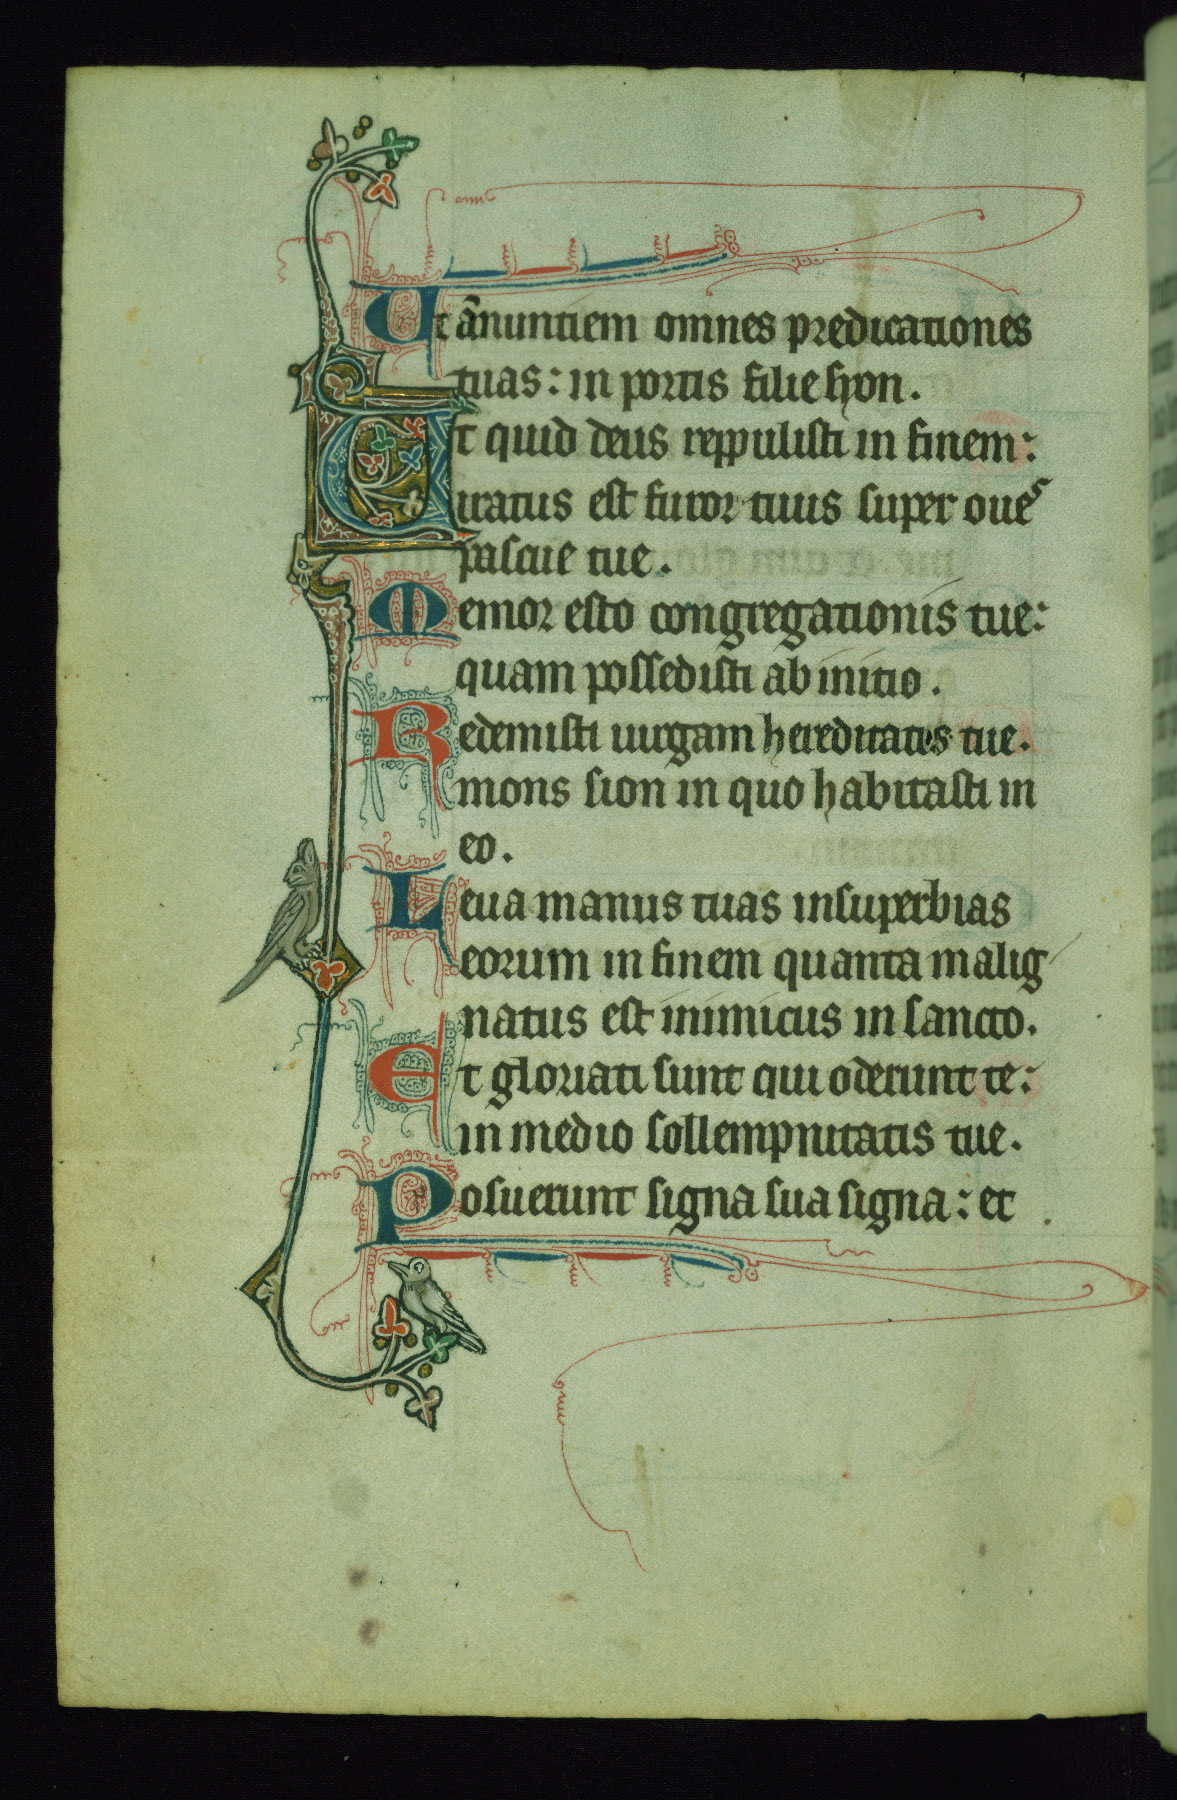 Ut añnuntiem omnes predicationes
tuas: in portis filie syon.
Ut quid deus reppulisti in finem:
iratus est furor tuus super oues
pascue tue.
Memor esto congregationis tue:
quam possedisti ab initio.
Redemisti uirgam hereditatis tue.
mons sion in quo habitasti in
eo.
Leua manus tuas in superbias
eorum in finem quanta malig
natus est inimicus in sancto.
Et gloriati sunt qui oderunt te:
in medio sollempnitatis tue.
Posuerunt signa sua signa: et